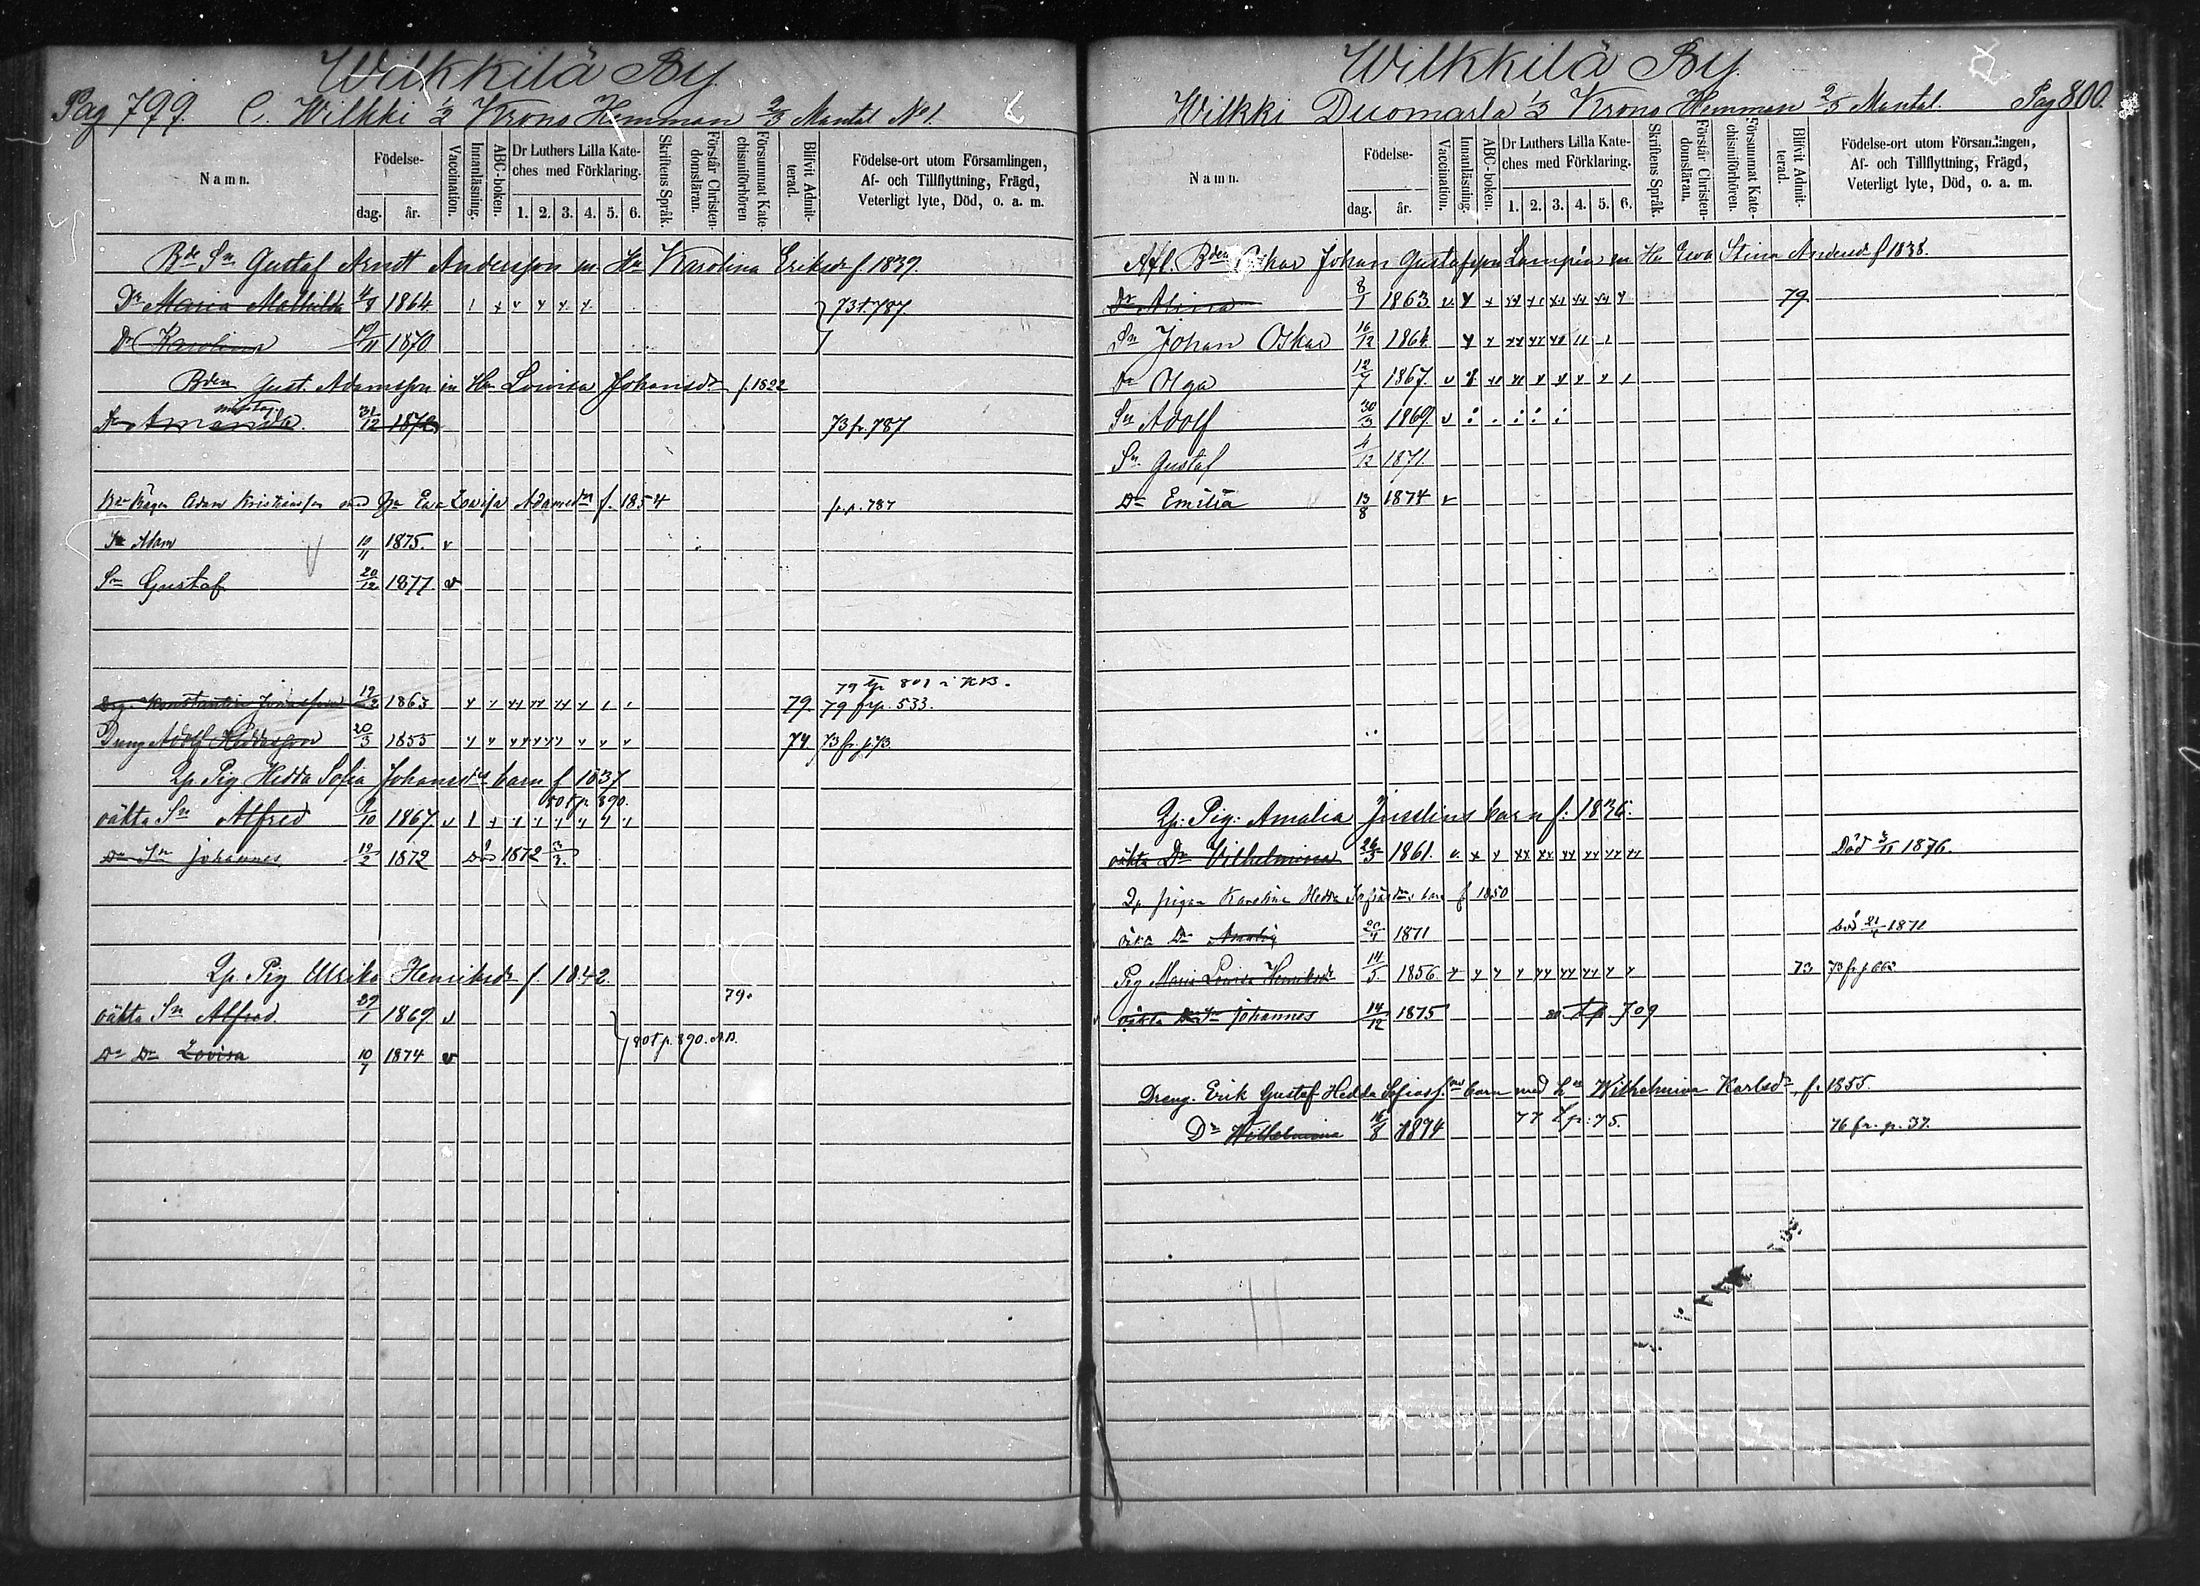 Wilkkilä By.
Pag 799. C. Wilkki 1/2 Krono Hemman 2/3 Mantal No 1.
Namn.
Födelse-
dag. år.
Vaccination.
Innanläsning.
ABC-boken.
Dr Luthers Lilla Kate-
ches med Förklaring.
1. 2. 3. 4. 5. 6.
Skriftens Språk.
Förstår Christen-
domsläran.
Försummat Kate-
chismiförhören
Blifvit Admit-
terad.
Födelse-ort utom Församlingen,
Af- och Tillflyttning, Frägd,
Veterligt lyte, Död, o. a. m.
Bde Sn Gustaf Arndt Andersson m Hu Karolina Eriksdr f 1839.
Dr Maria Mathilda 4/8 1864 73 t. 787
Dr Karolina 19/11 1870.
Bden Gust. Adamsson m Hu Lovisa Johansdr f. 1822
Dr Amanda 31/12 1872 73 fr. 787
Adam Kristiansson Eva Lovisa Adamsdr f. 1854 fr. p. 787
Sn Adam 10/11 1875. v
Sn Gustaf 20/12 1877. v
79 tp 801 i KB.
Drg. Konstantin 12/2 1863 79. 79 frp. 533.
Dreng Adolf Heddasson 20/3 1855 74 73 fr. p 73
Lp. Pig Hedda Sofia Johansdrs barn f 1837
80 t p. 890.
oäkta Sn Alfred 9/10 1867 v
Do Sn Johannes 12/2 1872 Dö 1872 3/3.
Lp. Pig Ulrika Henriksdr f. 1842.
79.
oäkta Sn Alfred. 29/1 1869. v
Do Dr Lovisa 10/7 1874 v 80 t p. 890.
Wilkkilä By.
Wilkki Duomarla 1/3 Krono Hemman 2/3 Mantal. Pag 800.
Namn.
Födelse-
dag. år.
Vaccination.
Innanläsning.
ABC-boken.
Dr Luthers Lilla Kate-
ches med Förklaring.
1. 2. 3. 4. 5. 6.
Skriftens Språk.
Förstår Christen-
domsläran.
Försummat Kate-
chismiförhören.
Blifvit Admit-
terad.
Födelse-ort utom Församlingen,
Af- och Tillflyttning, Frägd,
Veterligt lyte, Död, o. a. m.
Afl. Bden Oskar Johan Gustafsson Lampén m Hu Ewa Stina Andersdr f 1838.
Dr Alina 8/1 1863 79.
Sn Johan Oskar 16/12 1864
Dr Olga 12/7 1867. v
Sn Adolf 30/3 1869. v
Sn Gustaf 4/12 1871.
Dr Emilia 13/8 1874 v
Lp: Pig: Amalia Jusslins barn f: 1836.
oäkta Dr Vilhelmina 26/3 1861. Död 3/11 1876.
Lp pigan Karolina Hedda barn f 1850
oäkta Dr Amalia 20/4 1871 1871
Pig Maria Lovisa Henriksdr 14/5. 1856 73 73 fr p 662
oäkta Sn Johannes 14/12 1875 80 t p 709
Dreng. Erik Gustaf Hedda Sofiass. barn med h. Wilhelmina Karlsdr, f. 1855.
Dr Wilhelmina 16/8 1874 77 t p: 75. 76 fr. p. 37.